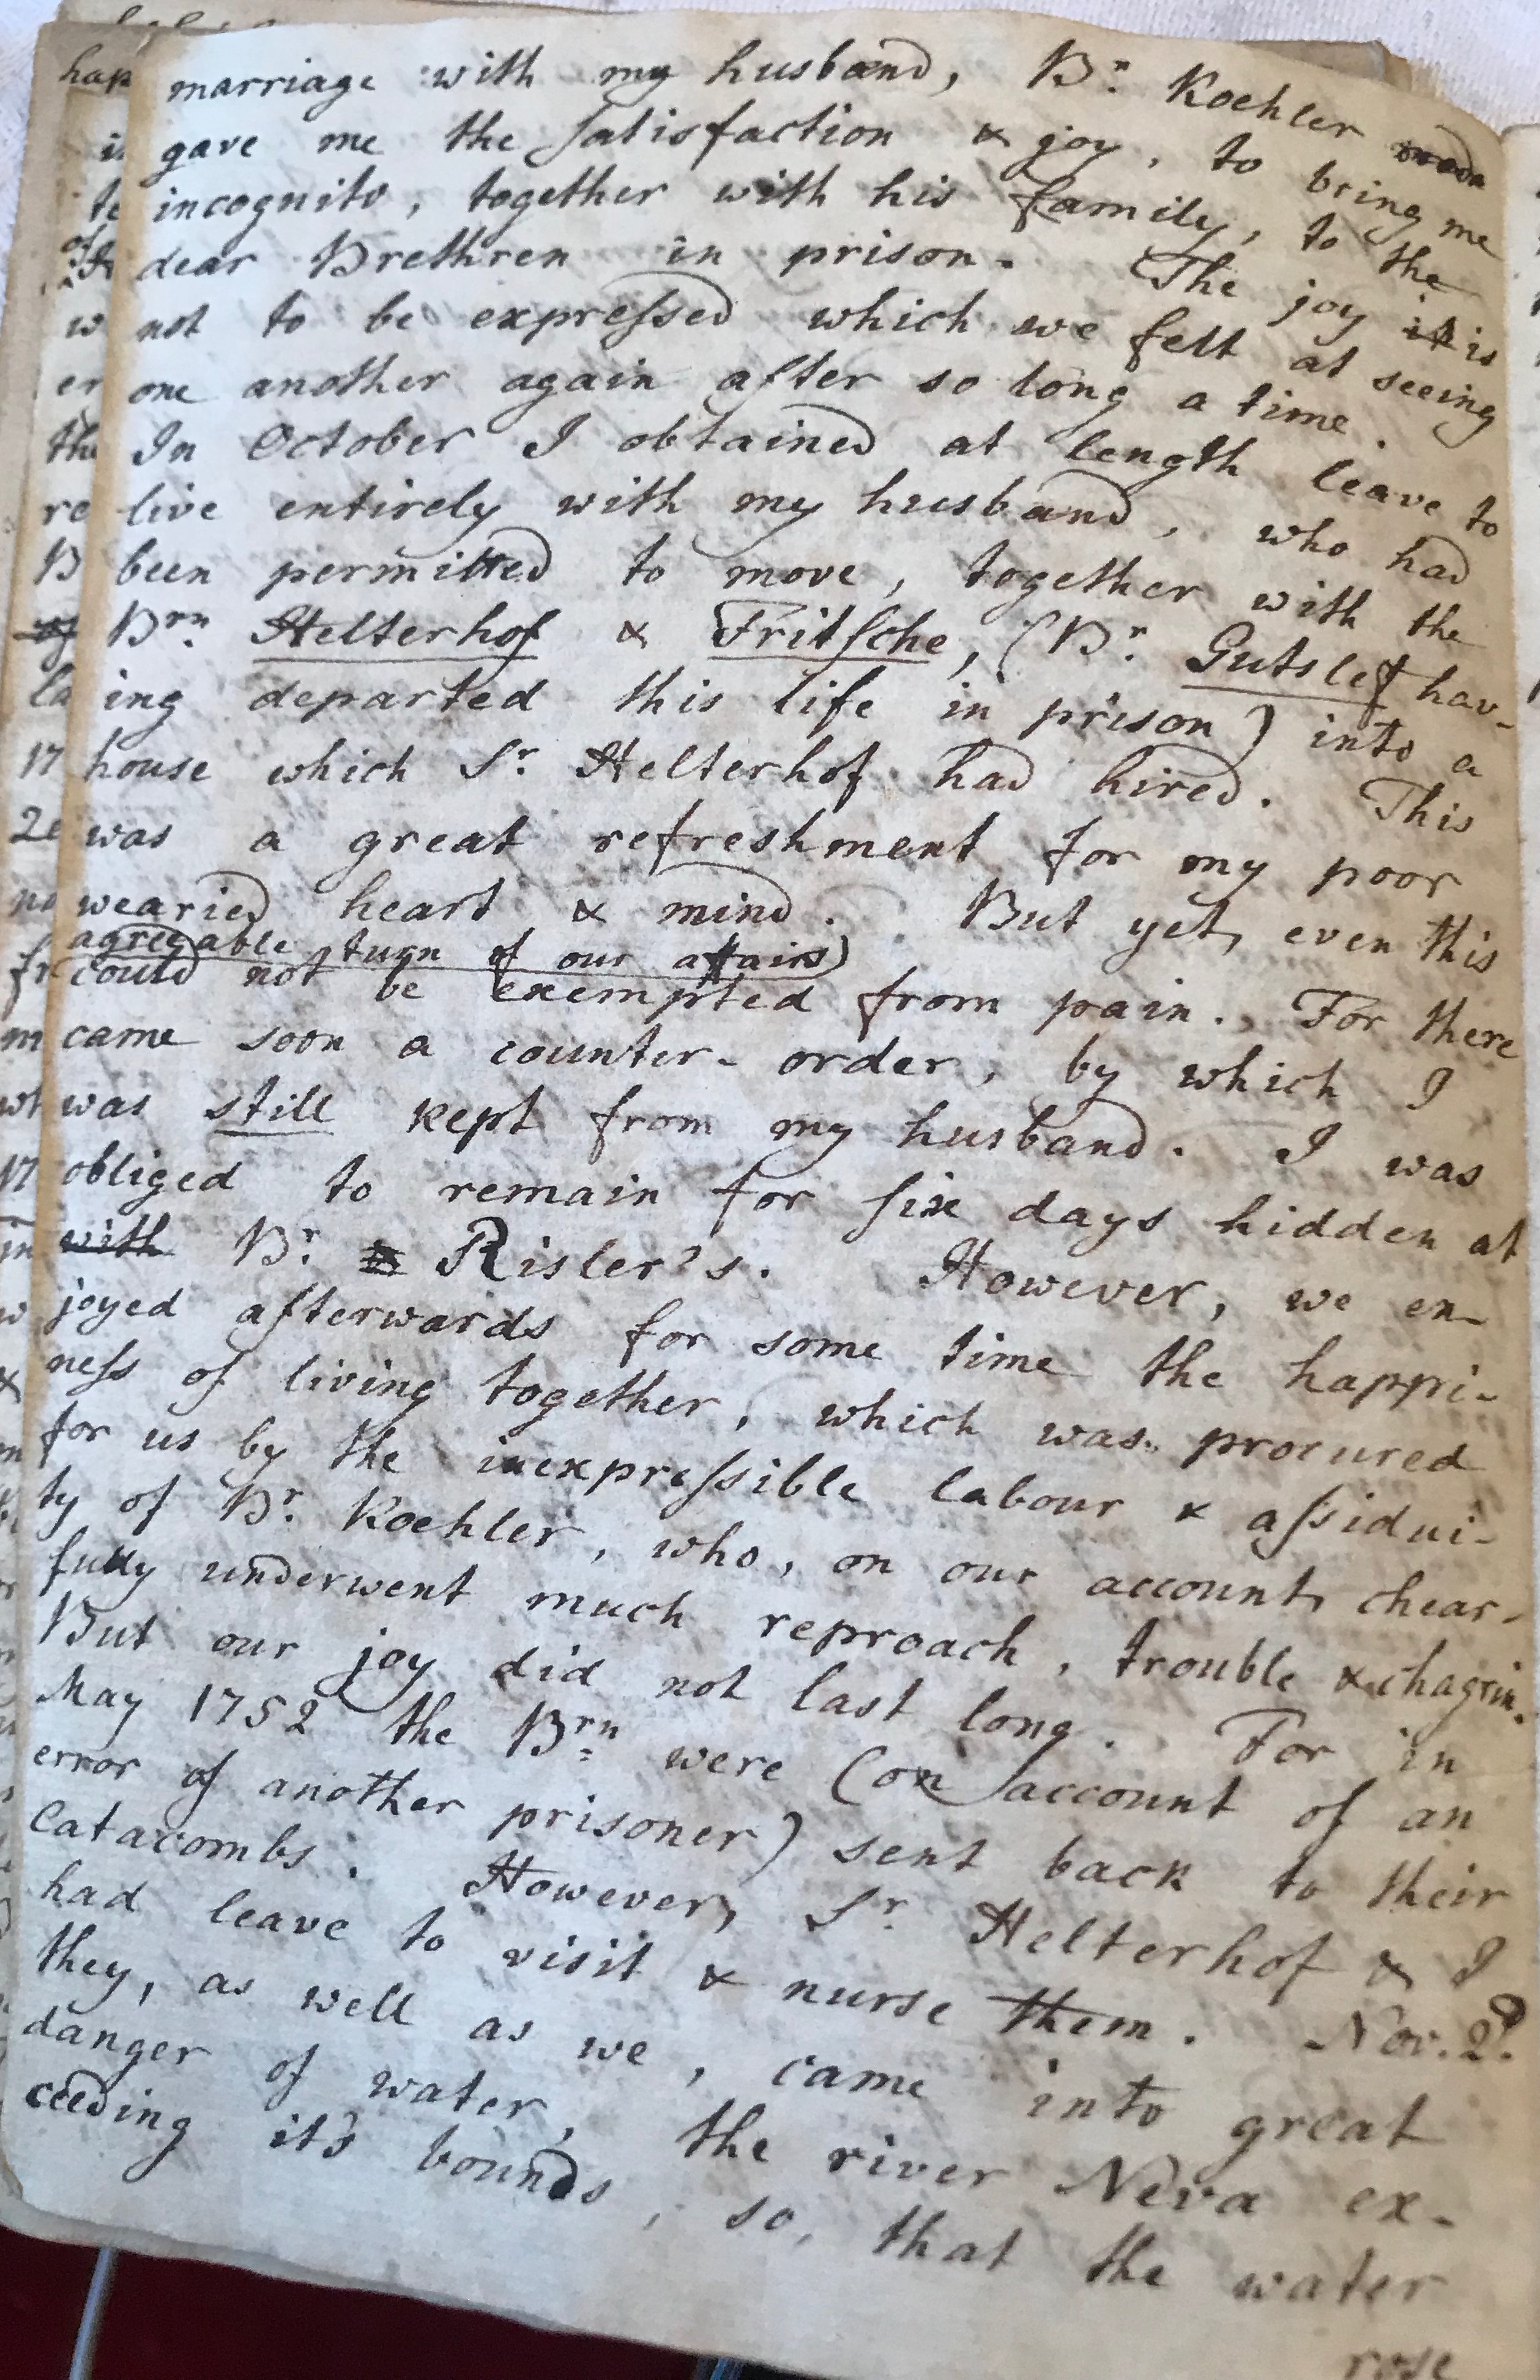 marriage with my husband, Br. Koehler
gave me the satisfaction & joy, to bring me
incognito, together with his family, to the
dear Brethren in prison. The joy is
not to be expressed which we felt at seeing
one another again after so long a time.
In October I obtained at length leave to
live entirely with my husband, who had
been permitted to move, together with the
Brn. Helterhof & Fritsche, (Br. Gutslef hav-
ing departed this life in prison) into a
house which Sr. Helterhof had hired. This
was a great refreshment for my poor
wearied heart & mind. But yet, even this
agreeable turn of our affairs)
could not be exempted from pain. For there
came soon a counter-order, by which I
was still kept from my husband. I was
obliged to remain for six days hidden at
with Br. Risler's. However, we en-
joyed afterwards for some time the happi-
ness of living together, which was procured
for us by the inexpressible labour & assidui-
ty of Br. Koehler, who, on our account, chear-
fully underwent much reproach, trouble & chagrin.
But our joy did not last long. For in
May 1752 the Brn were (on account of an
error of another prisoner) sent back to their
Catacombs. However, Sr. Helterhof & I
had leave to visit & nurse them. Nov. 2d.
they, as well as we, came into great
danger of water, the river Neva ex-
ceeding it's bounds, so, that the water
rose